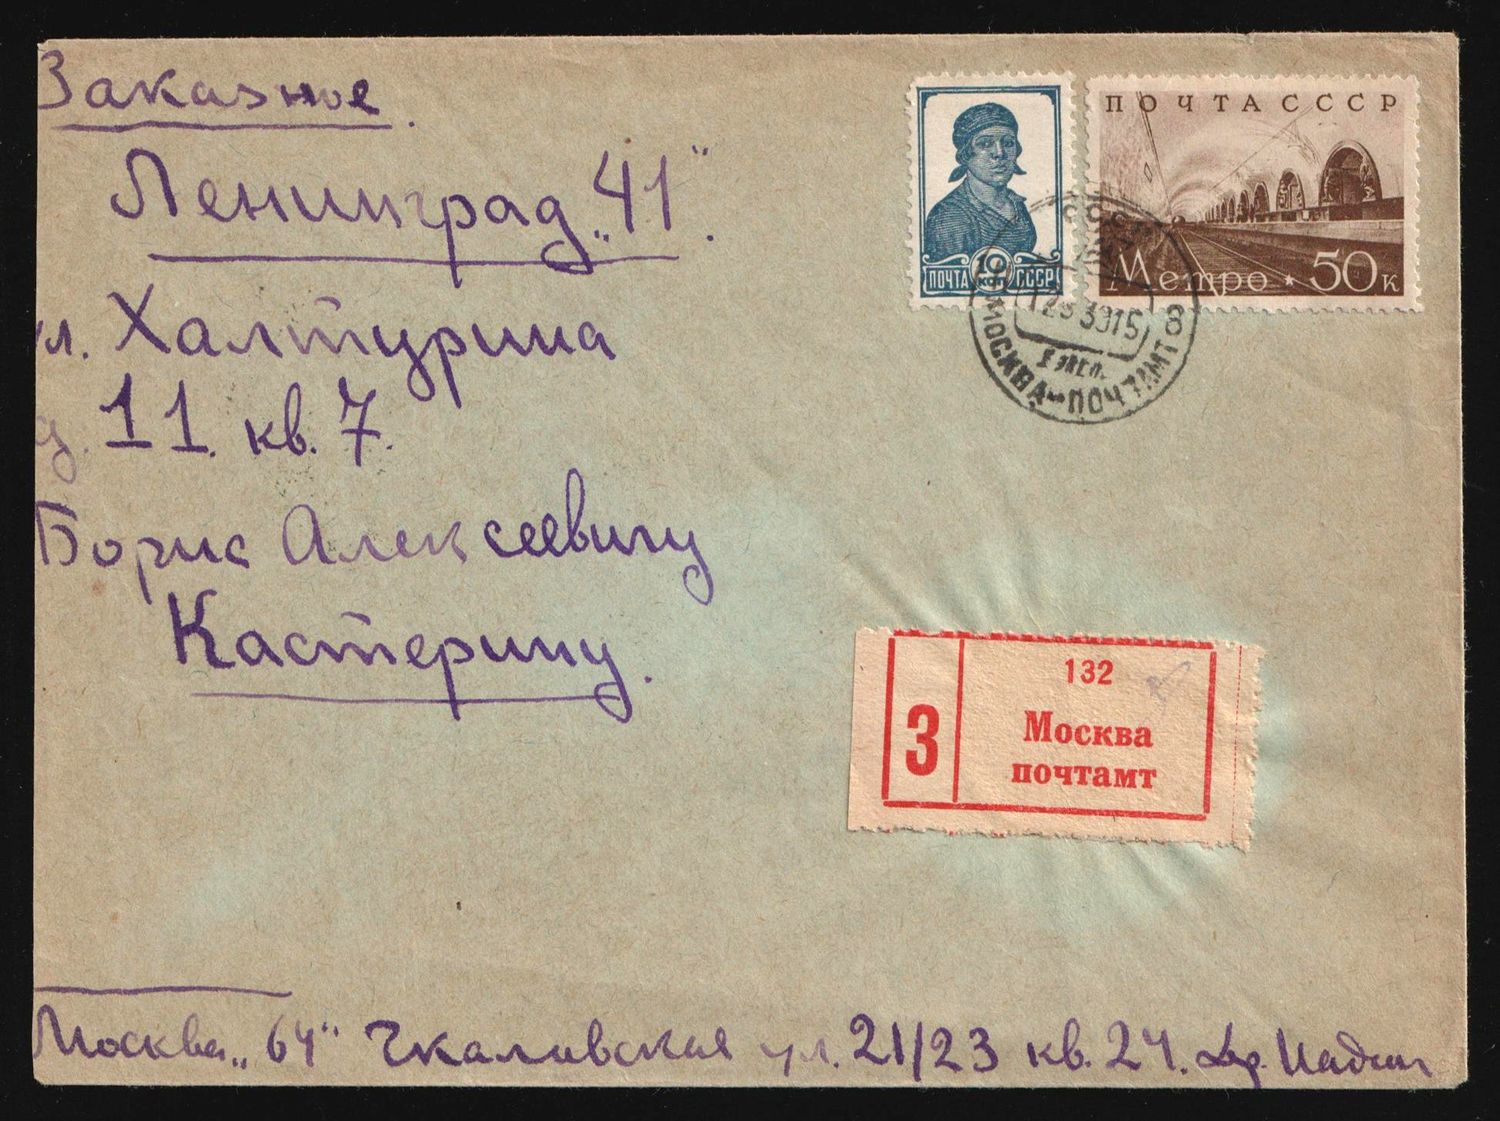 Заказное.
Ленинград „41".
ул. Халтурина
д. 11. кв. 7.
Борис Алексеевичу
Кастерину.
ПОЧТА 10 КОП СССР
ПОЧТА СССР
Метро ★ 50 к
МОСКВА-ПОЧТАМТ 8
132
З
Москва
почтамт
Москва „64" Чкаловская ул. 21/23 кв. 24.